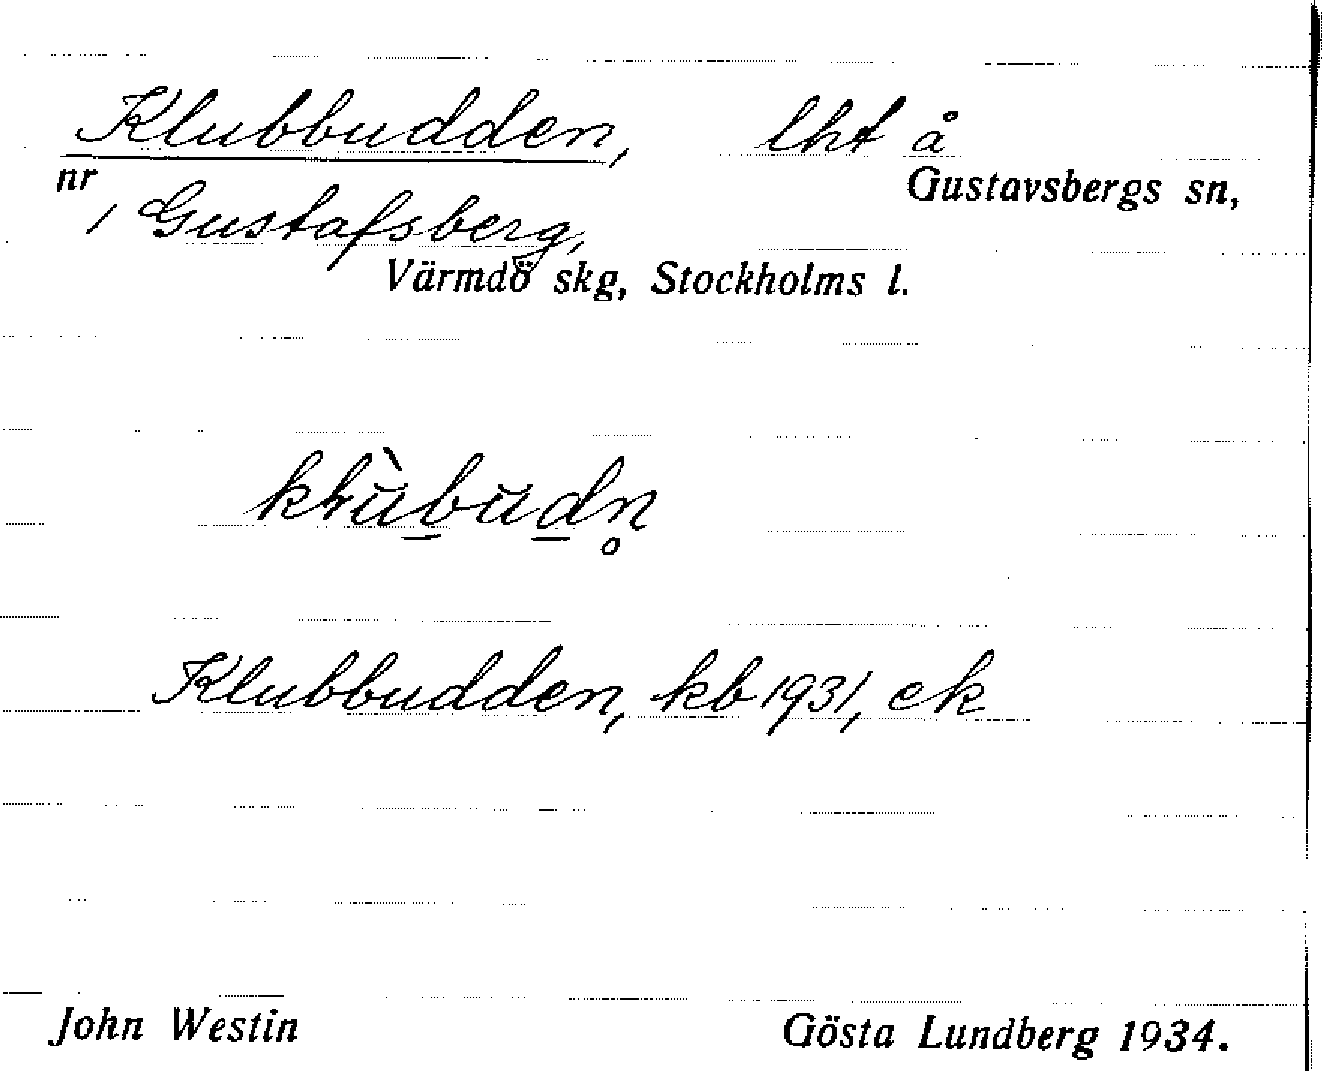 Klubbudden, lht å
nr 1 Gustafsberg, Gustavsbergs sn,
Värmdö skg, Stockholms l.
Klubbudden, kb 1931, ek
John Westin Gösta Lundberg 1934.